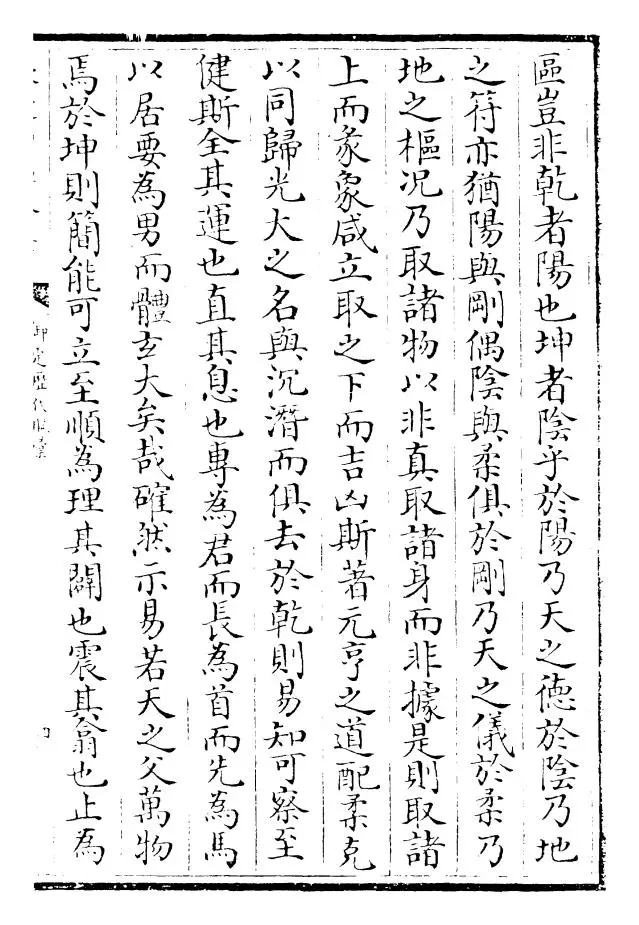 區豈非乾者陽也坤者陰乎於陽乃天之徳於陰乃地
之符亦猶陽與剛偶陰與柔俱於剛乃天之儀於柔乃
地之樞况乃取諸物以非真取諸身而非據是則取諸
上而彖象咸立取之下而吉凶斯著元亨之道配柔克
以同歸光大之名與沉潛而俱去於乾則易知可察至
健斯全其運也直其息也專為君而長為首而先為馬
以居要為男而體玄大矣哉確然示易若天之父萬物
焉於坤則簡能可立至順為理其闢也震其翕也止為
御定歴代賦彙